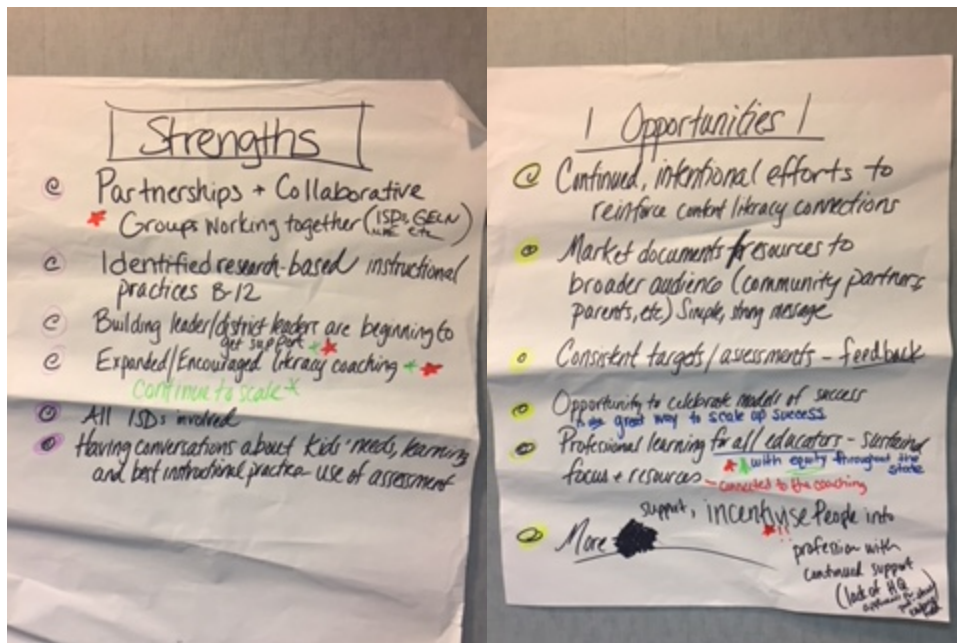 Strengths
Partnerships + Collaborative
Groups working together (ISDs, GELN
etc)
Identified research-based instructional
practices B-12
Building leader/district leaders are beginning to
get support +
Expanded/Encouraged literacy coaching +
Continue to scale
All ISDs involved
Having conversations about kids' needs, learning
and best instructional practice - use of assessment
| Opportunities |
Continued, intentional efforts to
reinforce content literacy connections
Market documents / resources to
broader audience (community partners,
parents, etc) Simple, strong message
Consistent targets/assessments - feedback
Opportunity to celebrate models of success
great way to scale up success
Professional learning for all educators - sustained
with equity throughout the
state
focus + resources - connected to the coaching
More support, incentivise People into
!!
profession with
continued support
(lack of HQ